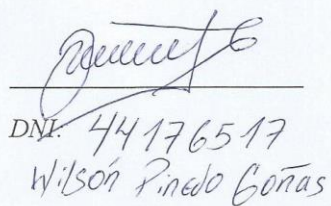 DNI: 44176517
Wilsón Pinedo Goñas